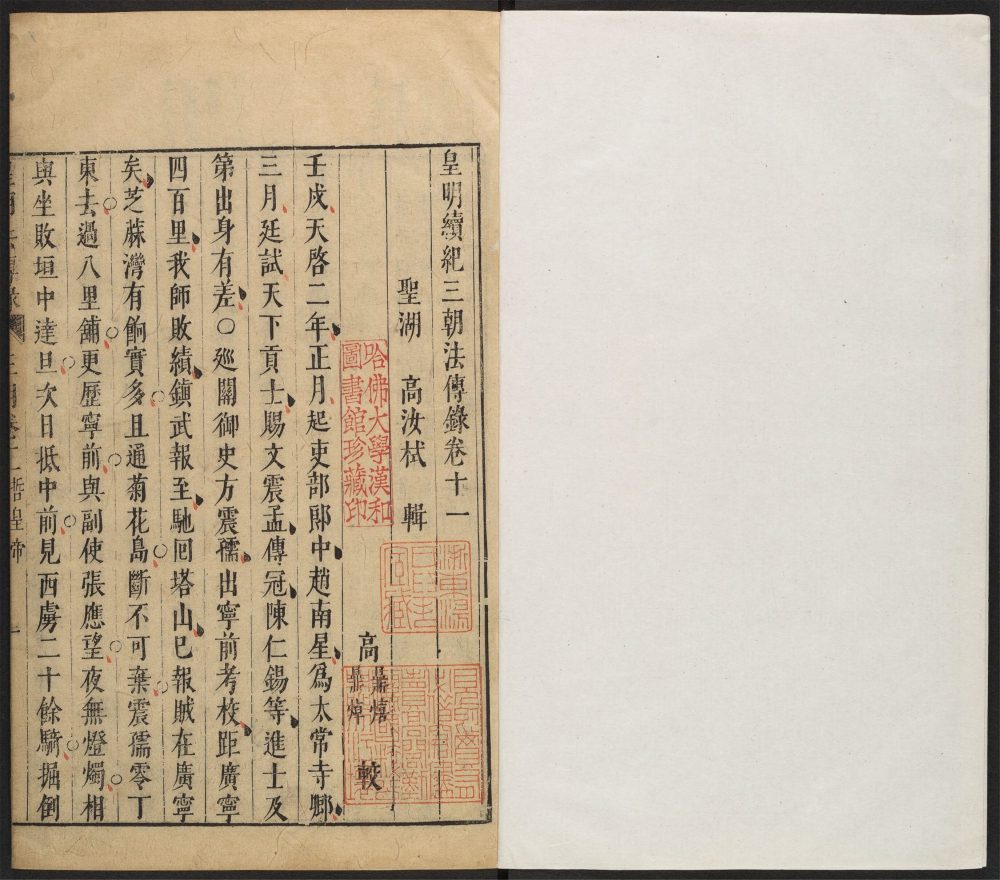 皇明續紀三朝法傳錄卷十一
聖湖 高汝栻 輯
高 鼎熺 鼎焯 較
壬戌天啓二年正月起吏部郎中趙南星爲太常寺卿
三月廷試天下貢士賜文震孟傳冠陳仁錫等進士及
第出身有差○廵關御史方震孺出寧前考校距廣寧
四百里我師敗績鎮武報至馳囘塔山巳報賊在廣寧
矣芝蔴灣有餉實多且通菊花島斷不可棄震孺零丁
東去過八里舖更歷寧前與副使張應望夜無燈燭相
與坐敗垣中達旦次日抵中前見西虜二十餘騎掘倒
哈佛大學漢和
圖書館珍藏印